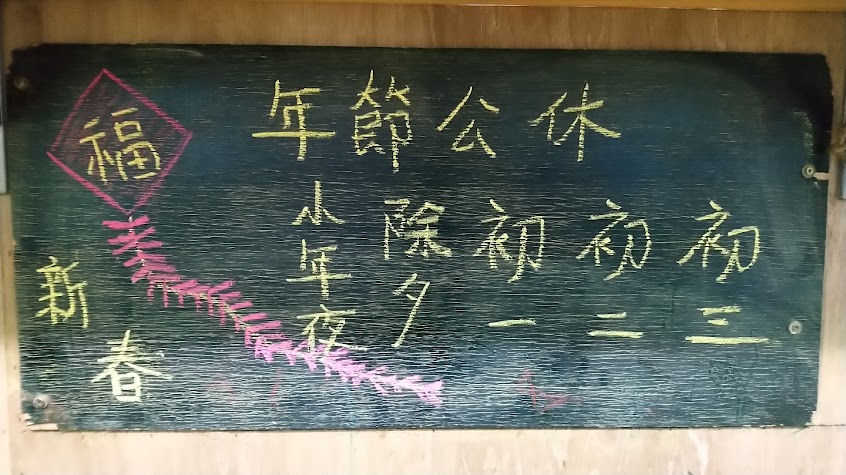 福
年節公休
小年夜 除夕 初一 初二 初三
新春